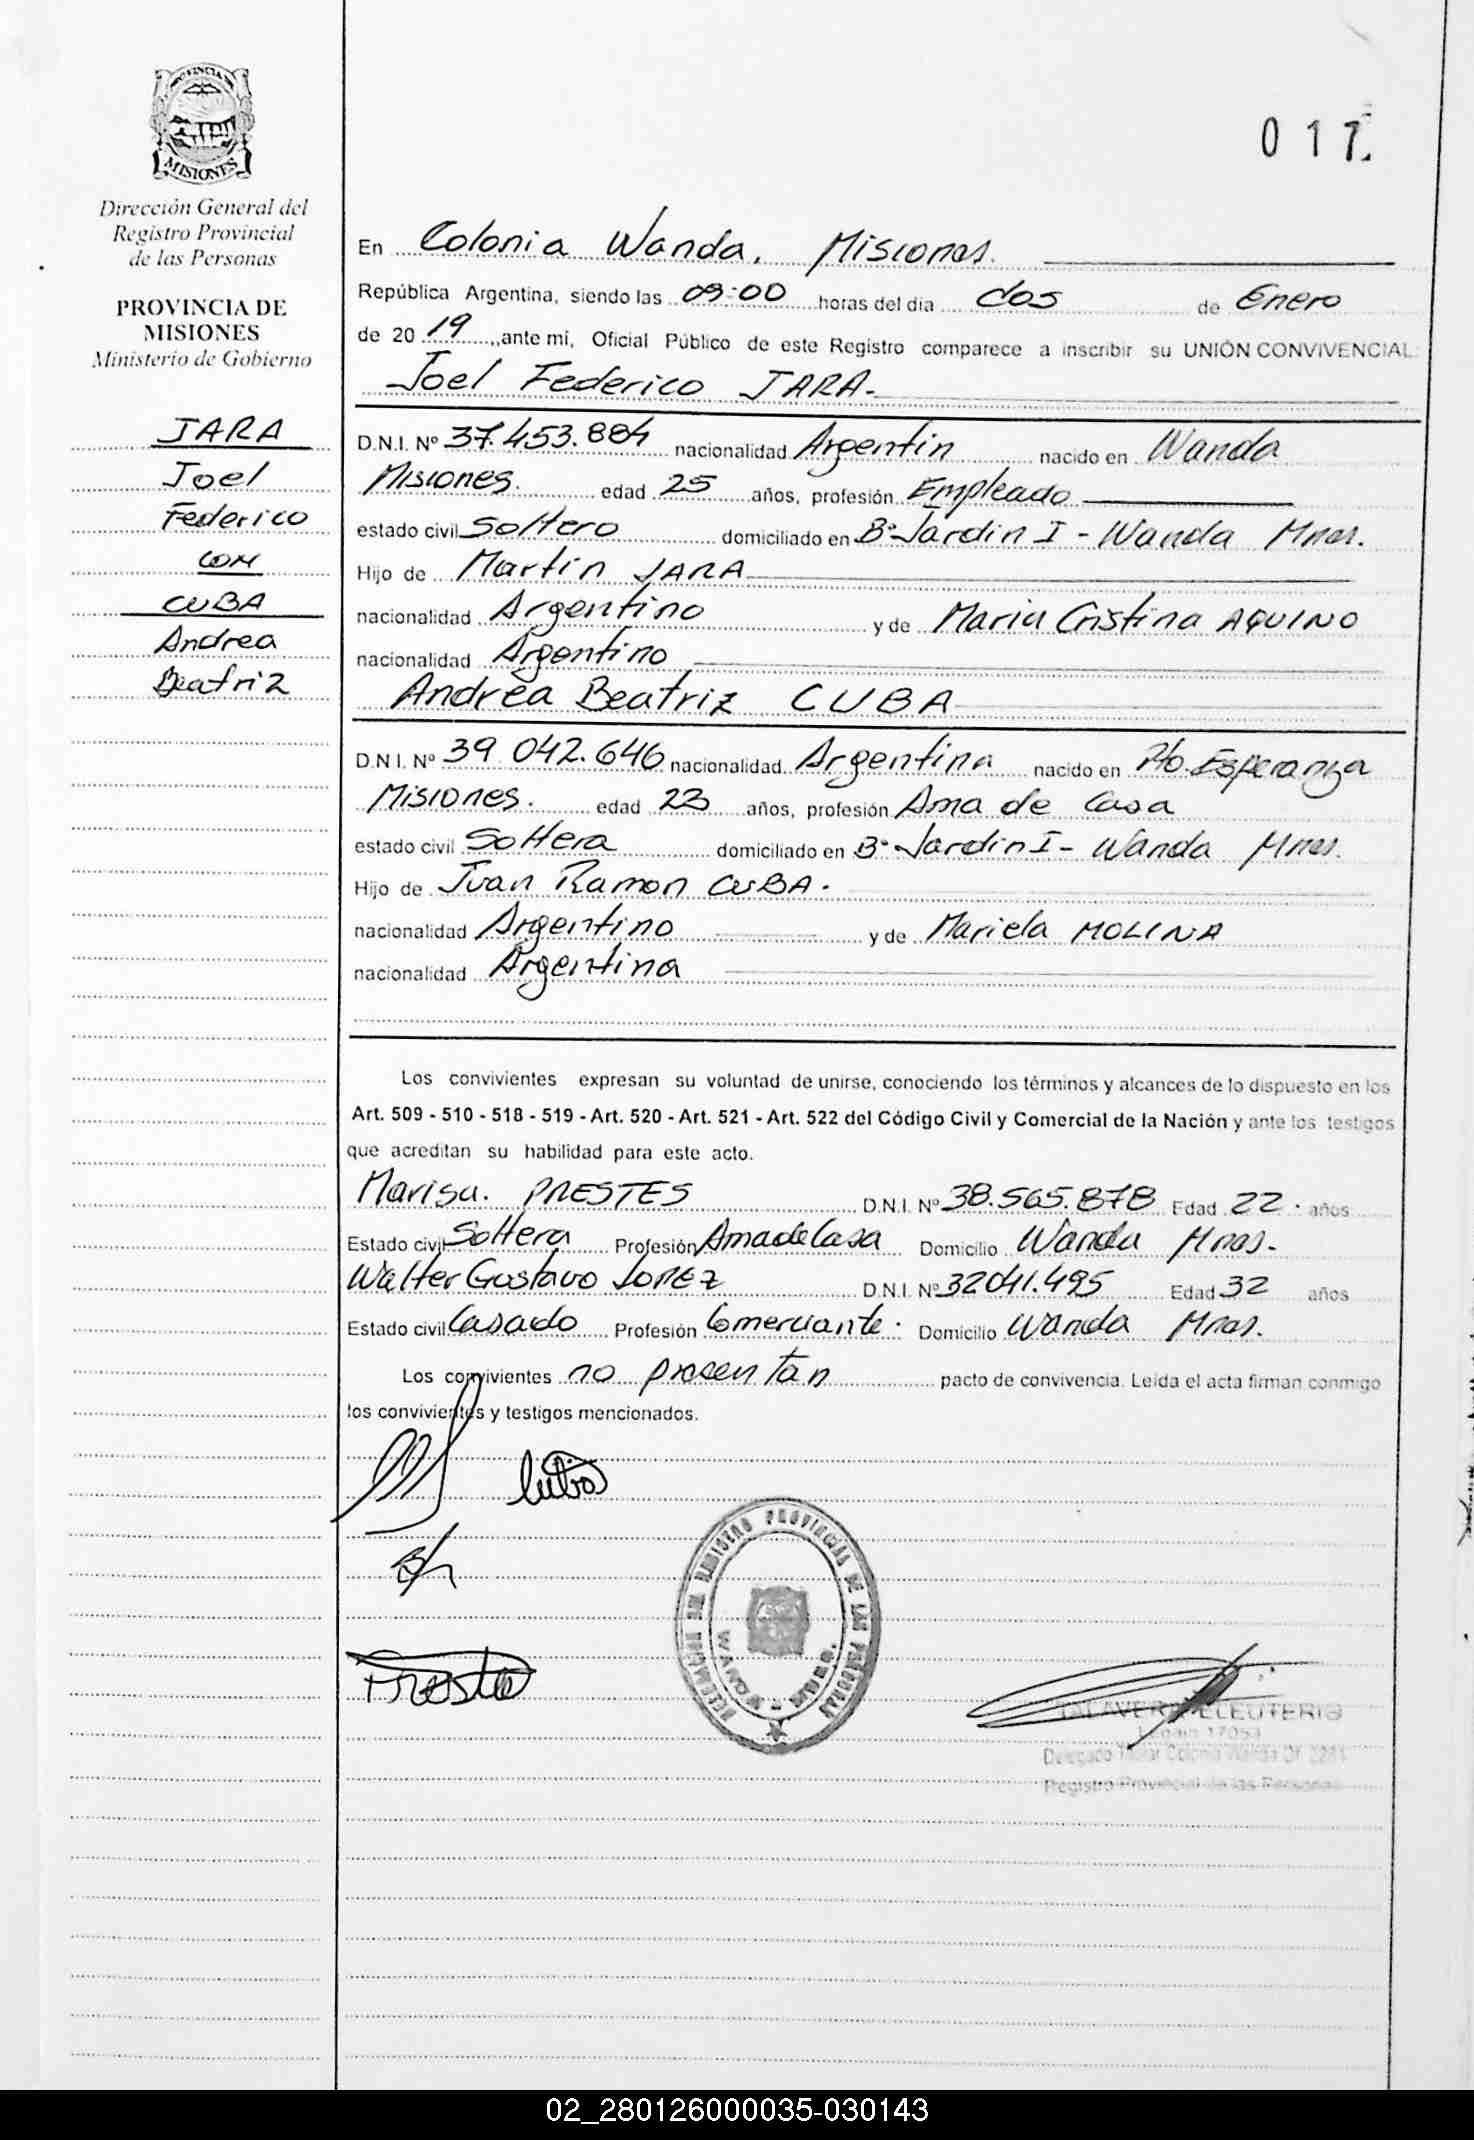 PROVINCIA DE
MISIONES
Dirección General del
Registro Provincial
de las Personas
PROVINCIA DE
MISIONES
Ministerio de Gobierno
JARA
Joel
Federico
CON
CUBA
Andrea
Beatriz
017
En Colonia Wanda, Misiones.
República Argentina, siendo las 09:00 horas del día dos de Enero
de 2019, ante mí, Oficial Público de este Registro comparece a inscribir su UNIÓN CONVIVENCIAL:
Joel Federico JARA.
D.N.I. Nº 37.453.884 nacionalidad Argentin nacido en Wanda
Misiones. edad 25 años, profesión Empleado
estado civil Soltero domiciliado en Bº Jardin I - Wanda Mnes.
Hijo de Martin JARA
nacionalidad Argentino y de Maria Cristina AQUINO
nacionalidad Argentino
Andrea Beatriz CUBA
D.N.I. Nº 39.042.646 nacionalidad Argentina nacido en Pto. Esperanza
Misiones. edad 23 años, profesión Ama de Casa
estado civil Soltera domiciliado en Bº Jardin I - Wanda Mnes.
Hijo de Juan Ramon CUBA.
nacionalidad Argentino y de Mariela MOLINA
nacionalidad Argentina
Los convivientes expresan su voluntad de unirse, conociendo los términos y alcances de lo dispuesto en los
Art. 509 - 510 - 518 - 519 - Art. 520 - Art. 521 - Art. 522 del Código Civil y Comercial de la Nación y ante los testigos
que acreditan su habilidad para este acto.
Marisa. PRESTES D.N.I. Nº 38.565.878 Edad 22. años
Estado civil Soltera Profesión Ama de Casa Domicilio Wanda Mnes.
Walter Gustavo LOPEZ D.N.I. Nº 32041.495 Edad 32 años
Estado civil Casado Profesión Comerciante. Domicilio Wanda Mnes.
Los convivientes no presentan pacto de convivencia. Leída el acta firman conmigo
los convivientes y testigos mencionados.
REGISTRO PROVINCIAL DE LAS PERSONAS
WANDA - MNES.
TALAVERA ELEUTERIO
Delegado Titular Colonia Wanda Of. 2281
Registro Provincial de las Personas
02_280126000035-030143